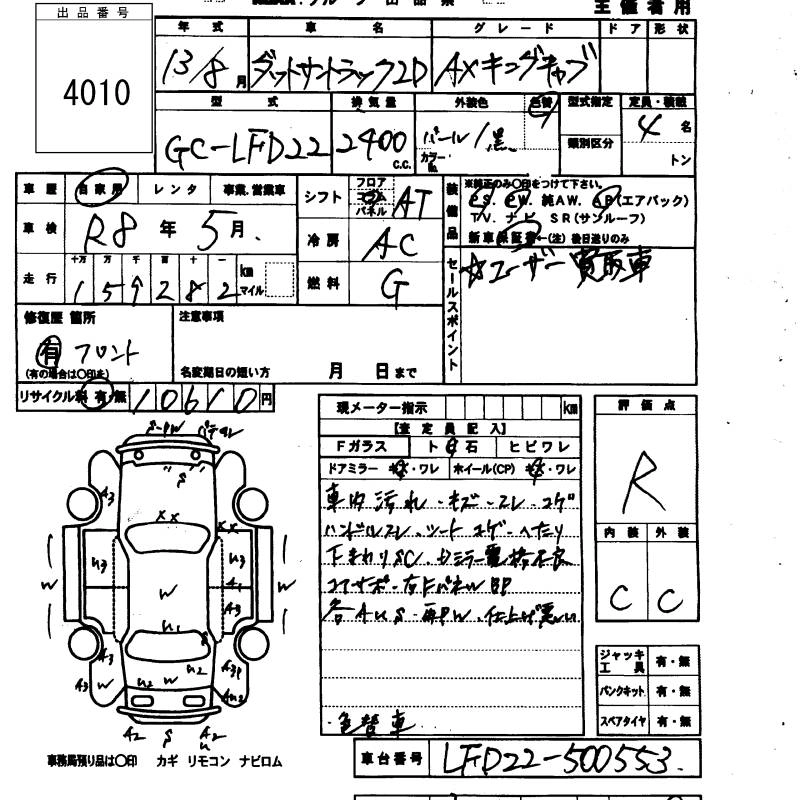 主催者用
出品番号
4010
年式 車名 グレード ドア 形状
13/8月 ダットサントラック2D AXキングキャブ
型式 排気量 外装色 色替 型式指定 定員・積載
GC-LFD22 2400 c.c. パール/黒 カラーNo. 類別区分 4名
トン
車歴 自家用 レンタ 事業.営業車
車検 R8年5月.
走行 十万 万 千 百 十 一 km マイル
159282
シフト フロア コラム パネル AT
冷房 AC
燃料 G
装備品
※純正のみ○印をつけて下さい。
P.S. P.W. 純AW. AB(エアバック)
T.V. ナビ SR(サンルーフ)
新車保証書←(注) 後日送りのみ
セールスポイント
☆ユーザー買取車
修復歴 箇所
有 フロント
(有の場合は○印を)
注意事項
名変期日の短い方 月 日まで
リサイクル料 有・無 10610円
現メーター指示 km
【査定員記入】
Fガラス ト 石 ヒビワレ
ドアミラー キズ・ワレ ホイール(CP) キズ・ワレ
車内汚れ・キズ・スレ・コゲ
ハンドルスレ・シートコゲ・ヘタリ
下まわりSC.
各AUS・再PW.仕上げ悪い
・色替車
評価点
R
内装 外装
C C
ジャッキ工具 有・無
パンクキット 有・無
スペアタイヤ 有・無
A3
W U3 U3 W
A1
W A3
U1 S
A3 A3
W U2 W U2
A2 S A2
U
事務局預り品は○印 カギ リモコン ナビロム
車台番号 LFD22-500553.